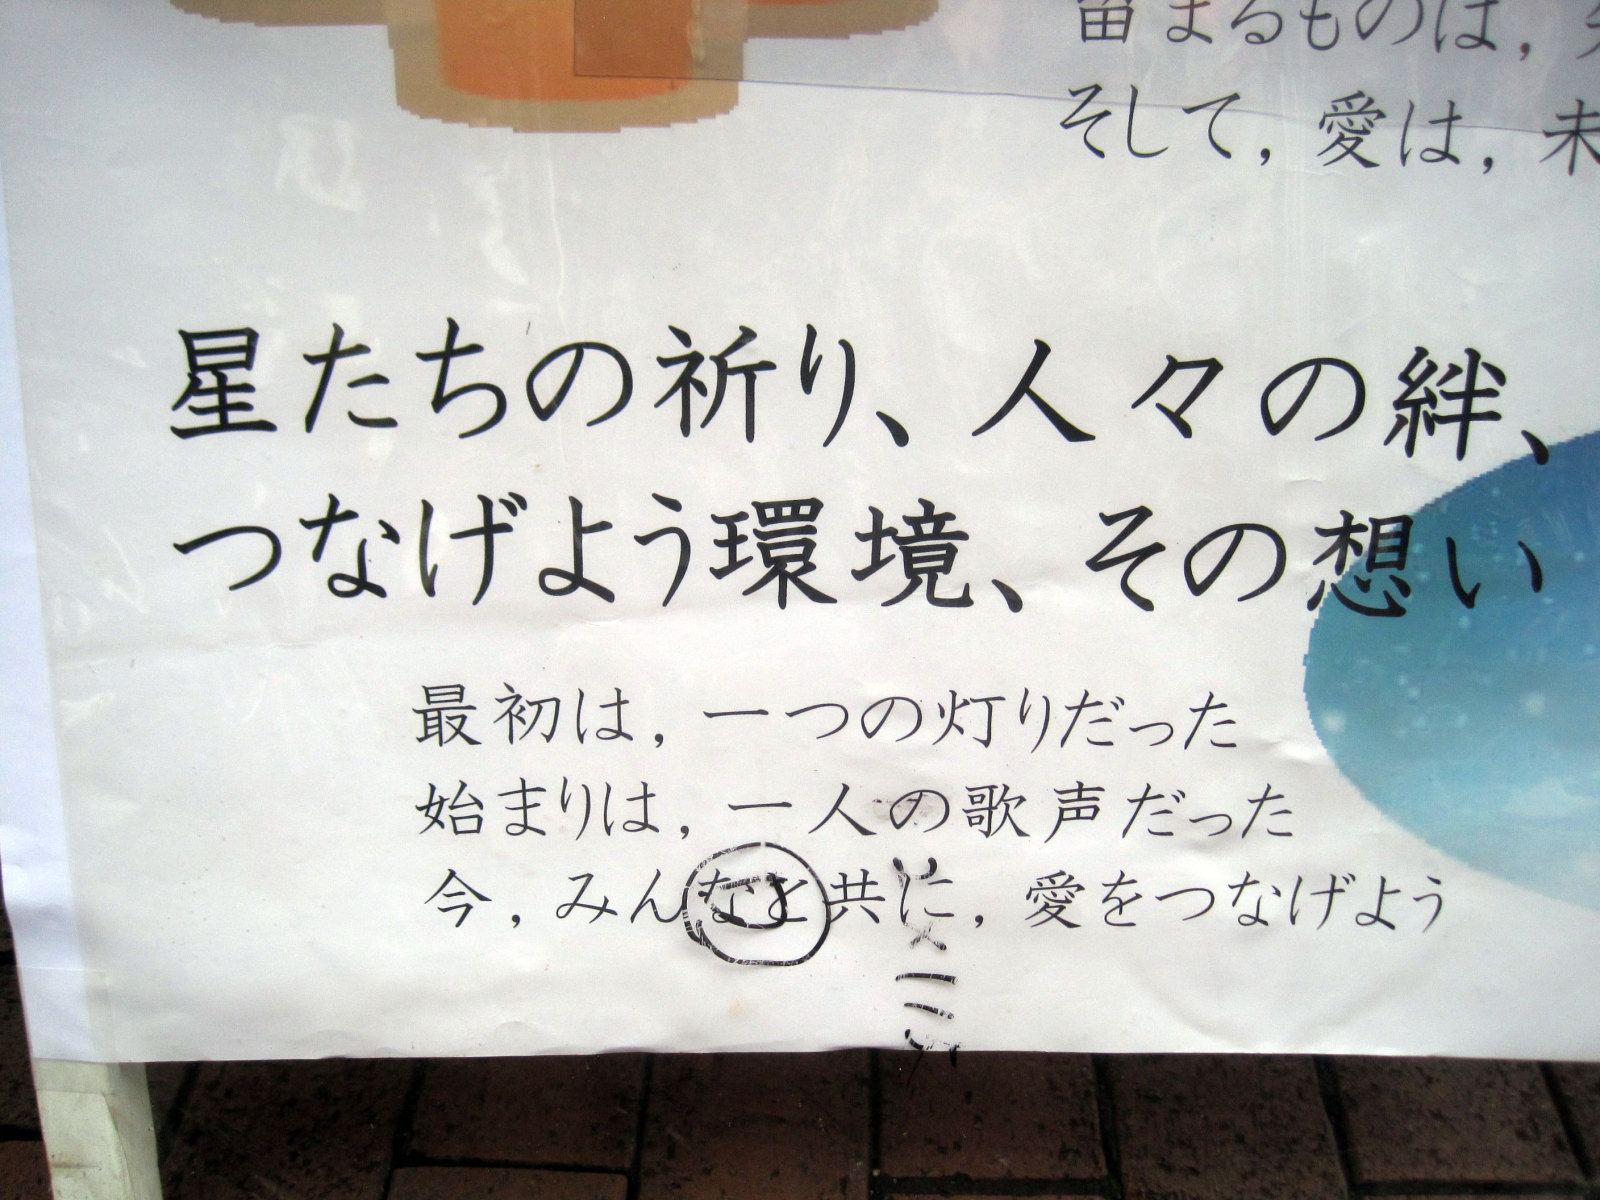 留まるものは，
そして，愛は，未
星たちの祈り、人々の絆、
つなげよう環境、その想い
最初は，一つの灯りだった
始まりは，一人の歌声だった
今，みんなと共に，愛をつなげよう